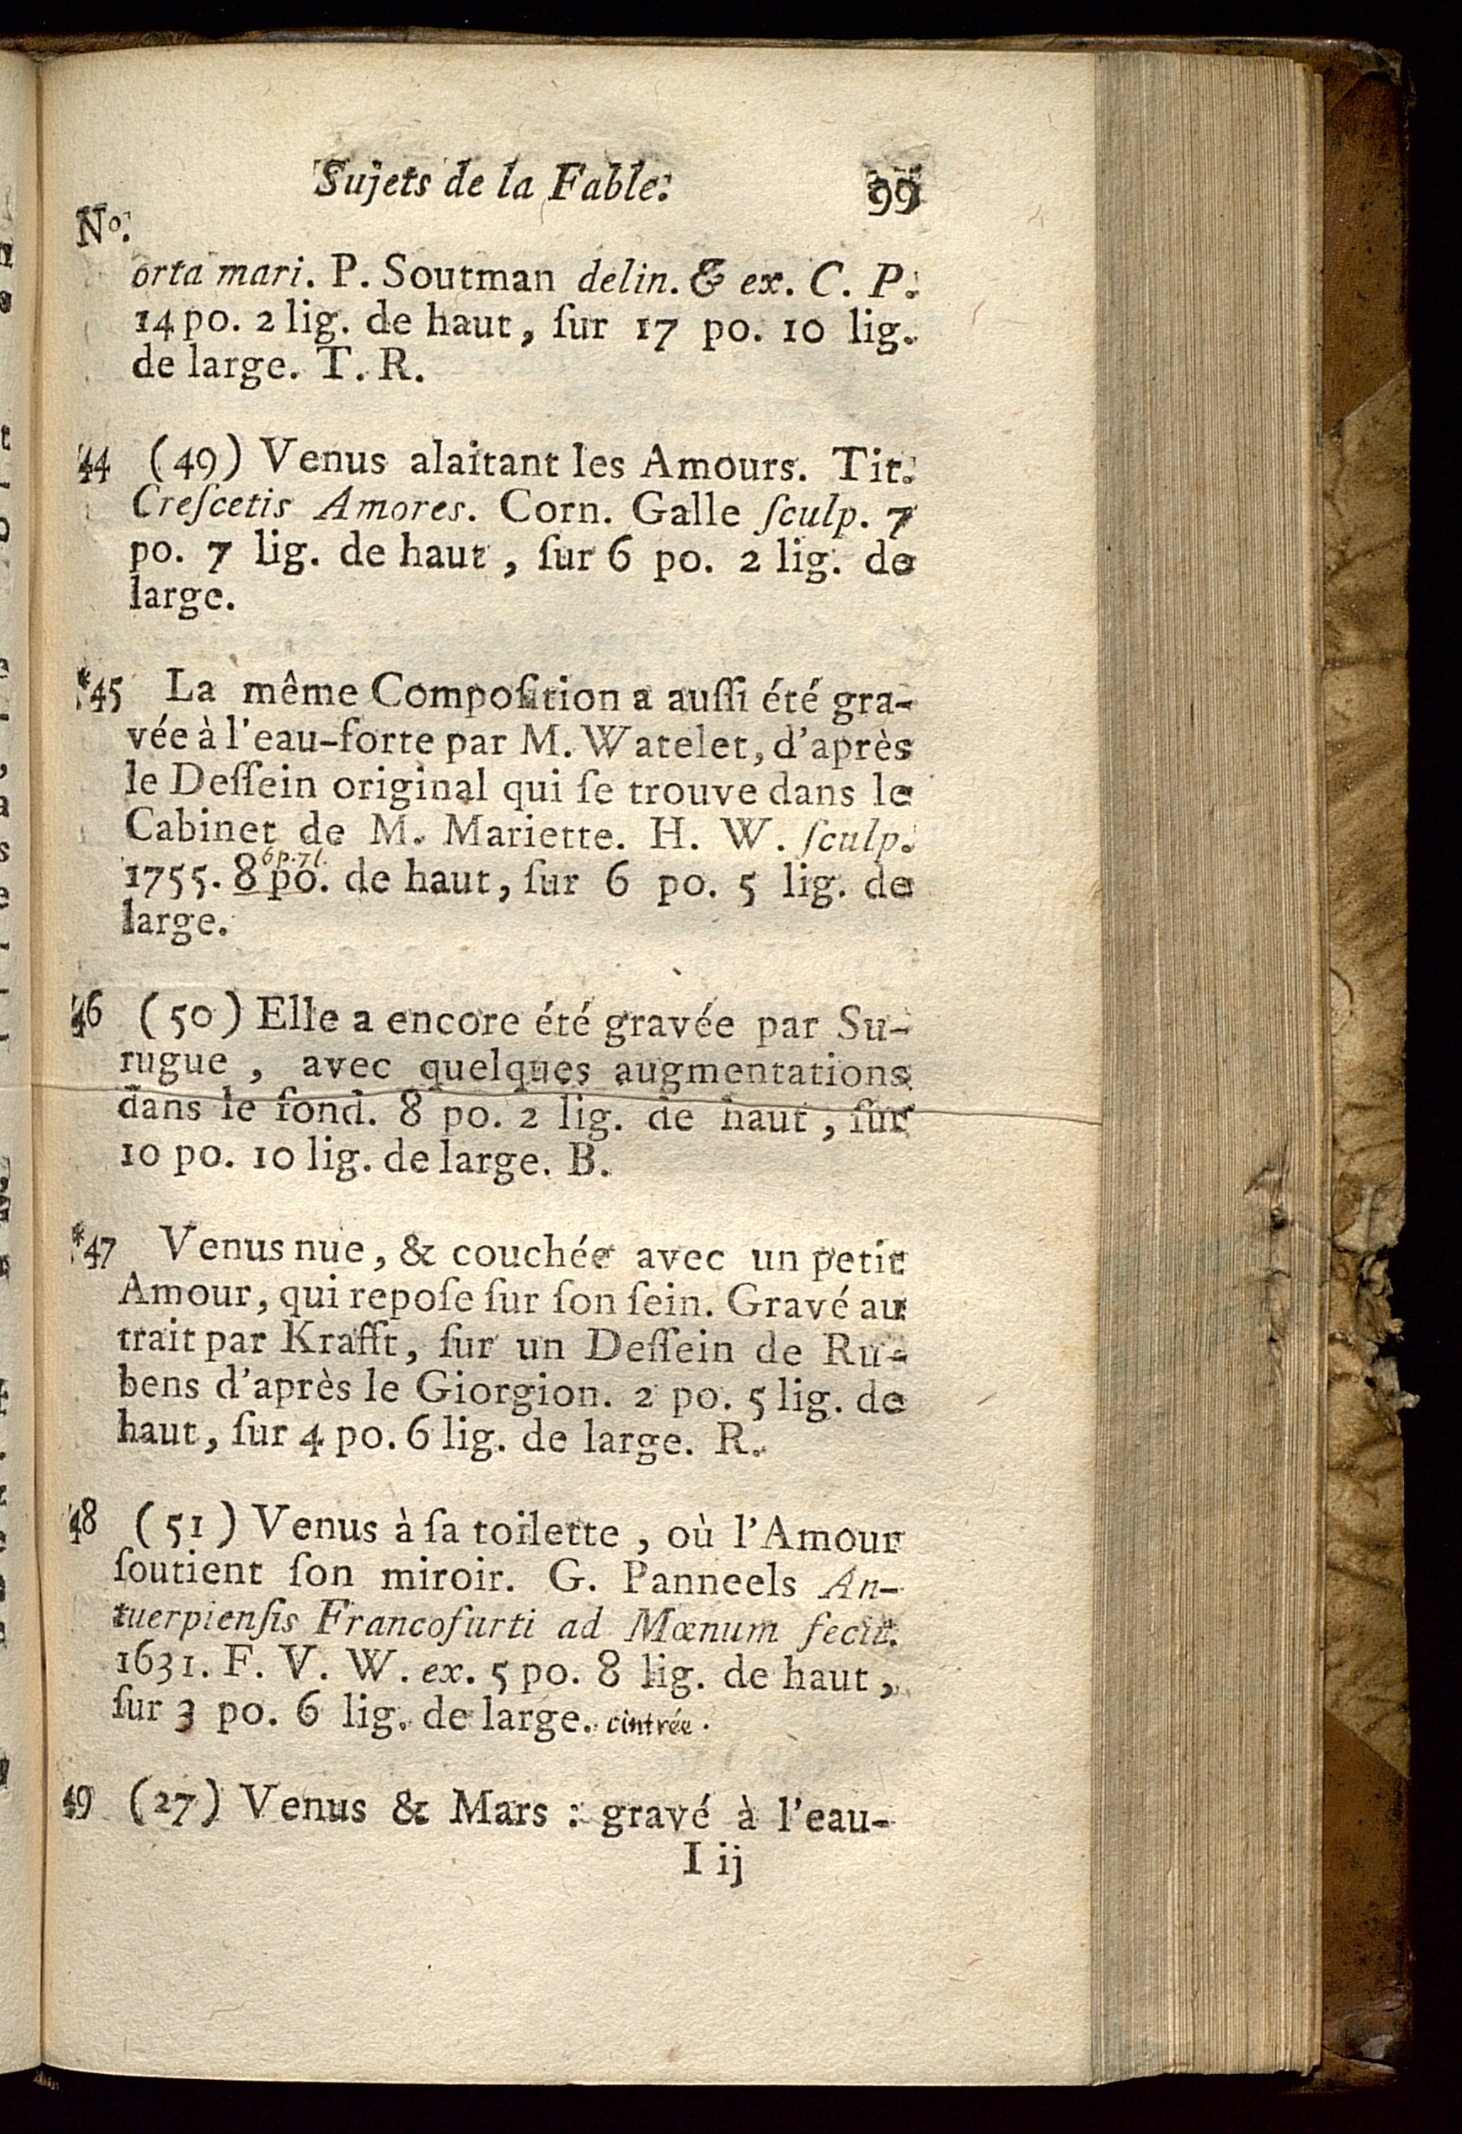 Sujets de la Fable. 99
No.
orta mari. P. Soutman delin. & ex. C. P.
14 po. 2 lig. de haut, ſur 17 po. 10 lig.
de large. T. R.
44 (49) Venus alaitant les Amours. Tit.
Creſcetis Amores. Corn. Galle ſculp. 7
po. 7 lig. de haut, ſur 6 po. 2 lig. de
large.
*45 La même Compoſition a auſſi été gra-
vée à l'eau-forte par M. Watelet, d'après
le Deſſein original qui ſe trouve dans le
Cabinet de M. Mariette. H. W. ſculp.
6p.7l.
1755. 8 po. de haut, ſur 6 po. 5 lig. de
large.
46 (50) Elle a encore été gravée par Su-
rugue, avec quelques augmentations
dans le fond. 8 po. 2 lig. de haut, ſur
10 po. 10 lig. de large. B.
*47 Venus nue, & couchée avec un petit
Amour, qui repoſe ſur ſon ſein. Gravé au
trait par Krafft, ſur un Deſſein de Ru-
bens d'après le Giorgion. 2 po. 5 lig. de
haut, ſur 4 po. 6 lig. de large. R.
48 (51) Venus à ſa toilette, où l'Amour
ſoutient ſon miroir. G. Panneels An-
tuerpienſis Francofurti ad Mœnum fecit.
1631. F. V. W. ex. 5 po. 8 lig. de haut,
ſur 3 po. 6 lig. de large. cintrée.
49 (27) Venus & Mars : gravé à l'eau-
I ij